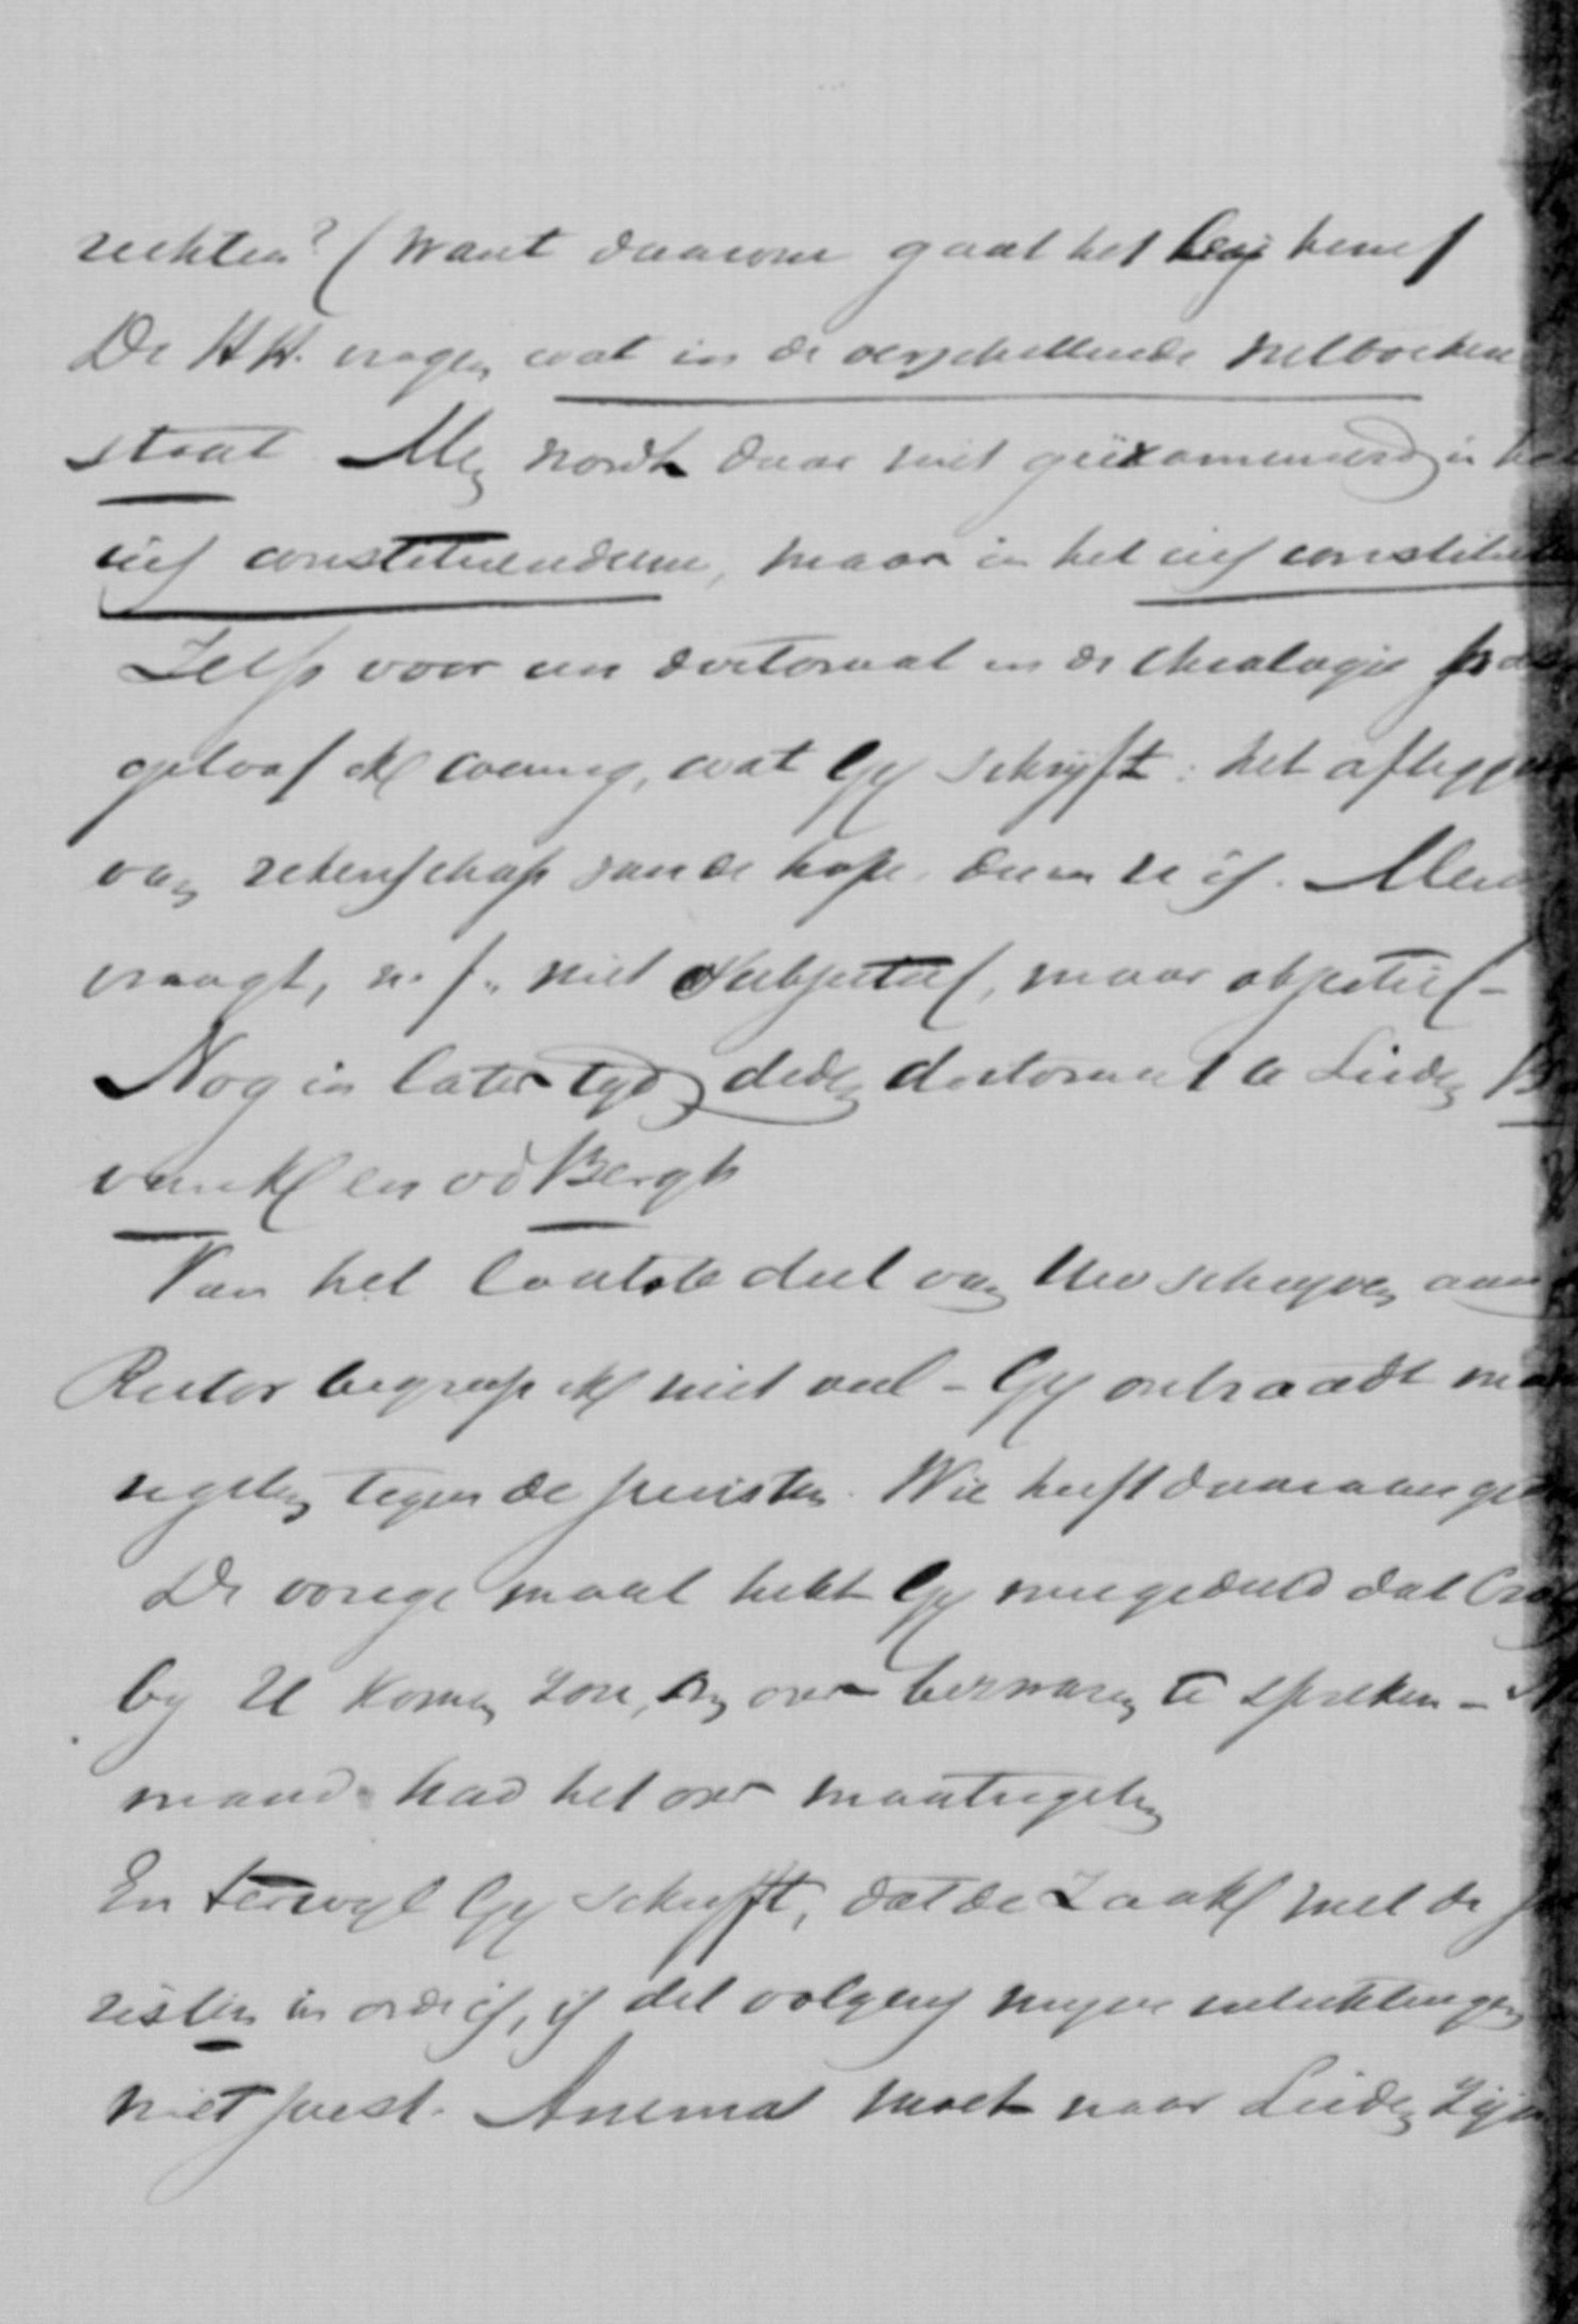 rechten? (Want daarom gaat het bij hen
De HH. vragen wat in de verschillende wetboeken
staat Men wordt daar niet geëxamineerd in het
ius constituendum, maar in het ius constitutum
Zelfs voor een doctoraat in de theologie
geloof ik weinig, wat Gij schrijft: het afleggen
van rekenschap van de hope die in ze is. Men
vraagt, n. f. niet subjectief, maar objectief –
Nog in later tyd deden doctoraal te Leiden
vinck en vd Bergh
Van het laatste deel van Uw schrijven aan
Rector begreep ik niet veel – Gij ontraadt maat
regelen tegen de juristen. Wie heeft daaraan
De vorige maal hebt Gij meegedeeld dat
by U komen zou, om over bezwaren te spreken –
mand had het over maatregelen
En terwyl Gij schrijft, dat de Zaak met de ju
risten in orde is, is dit volgens mijne inlichtingen
niet juist. Anema moet naar Leiden Zijn